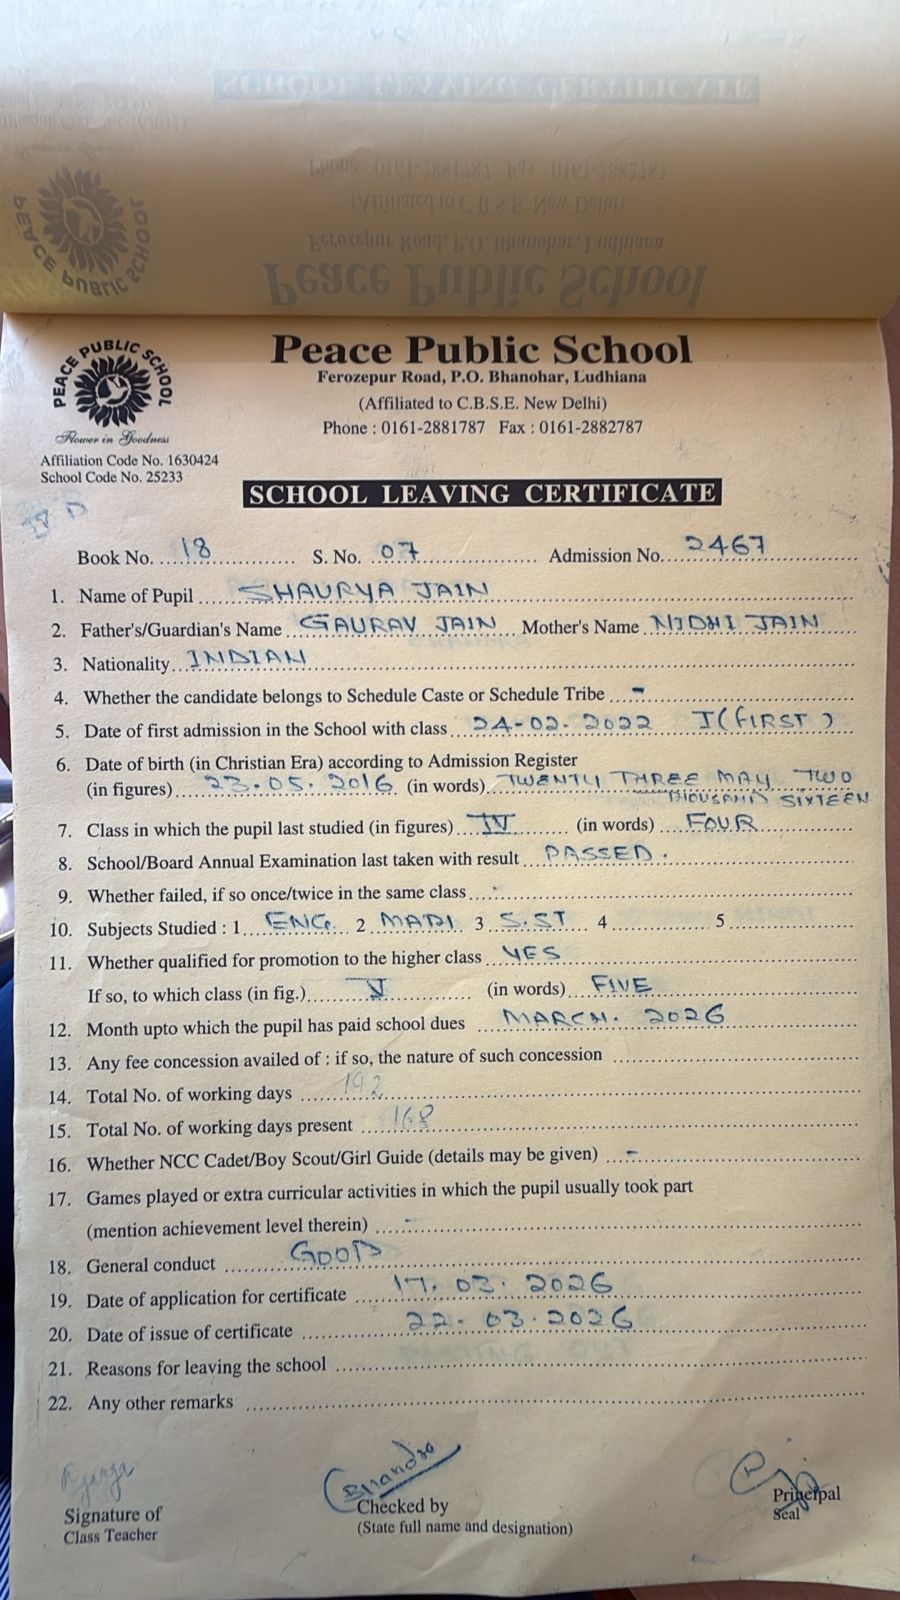 Peace Public School
Ferozepur Road, P.O. Bhanohar, Ludhiana
(Affiliated to C.B.S.E. New Delhi)
Phone : 0161-2881787 Fax : 0161-2882787
PEACE PUBLIC SCHOOL
Flower in Goodness
Affiliation Code No. 1630424
School Code No. 25233
SCHOOL LEAVING CERTIFICATE
Book No. 18 S. No. 07 Admission No. 2467
1. Name of Pupil SHAURYA JAIN
2. Father's/Guardian's Name GAURAV JAIN Mother's Name NIDHI JAIN
3. Nationality INDIAN
4. Whether the candidate belongs to Schedule Caste or Schedule Tribe -
5. Date of first admission in the School with class 24-02-2022 I (FIRST)
6. Date of birth (in Christian Era) according to Admission Register
(in figures) 23.05.2016 (in words) TWENTY THREE MAY TWO
THOUSAND SIXTEEN
7. Class in which the pupil last studied (in figures) IV (in words) FOUR
8. School/Board Annual Examination last taken with result PASSED.
9. Whether failed, if so once/twice in the same class -
10. Subjects Studied : 1 ENG. 2 3 S.ST 4 5
11. Whether qualified for promotion to the higher class YES
If so, to which class (in fig.) V (in words) FIVE
12. Month upto which the pupil has paid school dues MARCH. 2026
13. Any fee concession availed of : if so, the nature of such concession
14. Total No. of working days 192
15. Total No. of working days present 168
16. Whether NCC Cadet/Boy Scout/Girl Guide (details may be given) -
17. Games played or extra curricular activities in which the pupil usually took part
(mention achievement level therein) -
18. General conduct GOOD
19. Date of application for certificate 17.03.2026
20. Date of issue of certificate 22-03-2026
21. Reasons for leaving the school
22. Any other remarks
Signature of
Class Teacher
Checked by
(State full name and designation)
Principal
Seal